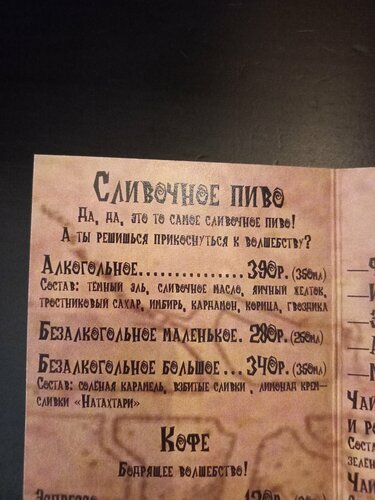 Сливочное пиво
Да, да, это то самое сливочное пиво!
А ты решишься прикоснуться к волшебству?
Алкогольное.............. 390р. (350мл)
Состав: тёмный эль, сливочное масло, яичный желток,
тростниковый сахар, имбирь, кардамон, корица, гвоздика
Безалкогольное маленькое. 280р. (250мл)
Безалкогольное большое... 340р. (350мл)
Состав: солёная карамель, взбитые сливки , лимонад крем-
сливки «Натахтари»
Кофе
Бодрящее волшебство!
Эспрессо
Чай
Чай